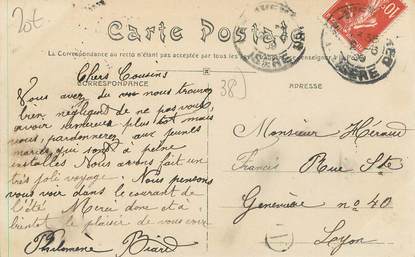 Carte Postale
La Correspondance au recto n'étant pas acceptée par tous les pays
CORRESPONDANCE
ADRESSE
Chers Cousins
Vous avez du vos nous trouver
bien négligent de ne pas vous
avoir remercié plus tôt mais
vous pardonnerez aux jeunes
mariés qui sont à peine
installés Nous avons fait un
très joli voyage. Nous pensons
vous voir dans le courant de
l'été Merci donc et à
bientôt le plaisir de vous voir
Philomène Biard
Monsieur
Francis Rue Ste
Geneviève n° 40
Lyon
38
ISERE
ISERE
10